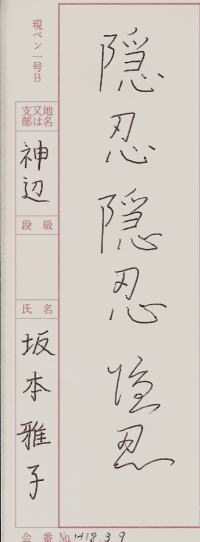 隠忍隠忍隠忍
現ペン一号B
地名又は支部
神辺
段級
氏名
坂本雅子
会番No.141839